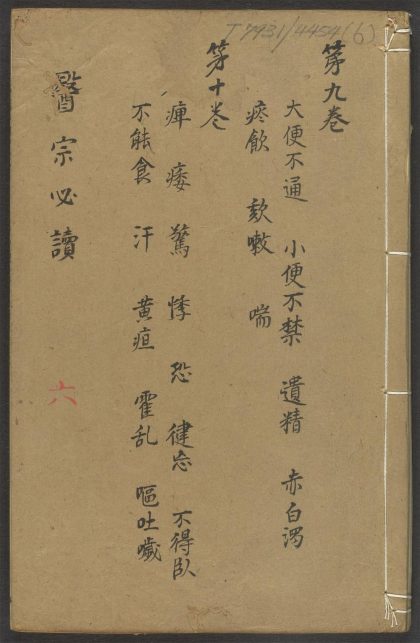 T7931/4454(6)
第九卷
大便不通 小便不禁 遺精 赤白濁
痰飲 欬嗽 喘
第十卷
痺 痿 驚 悸 恐 健忘 不得臥
不能食 汗 黄疸 霍乱 嘔吐噦
醫宗必讀
六